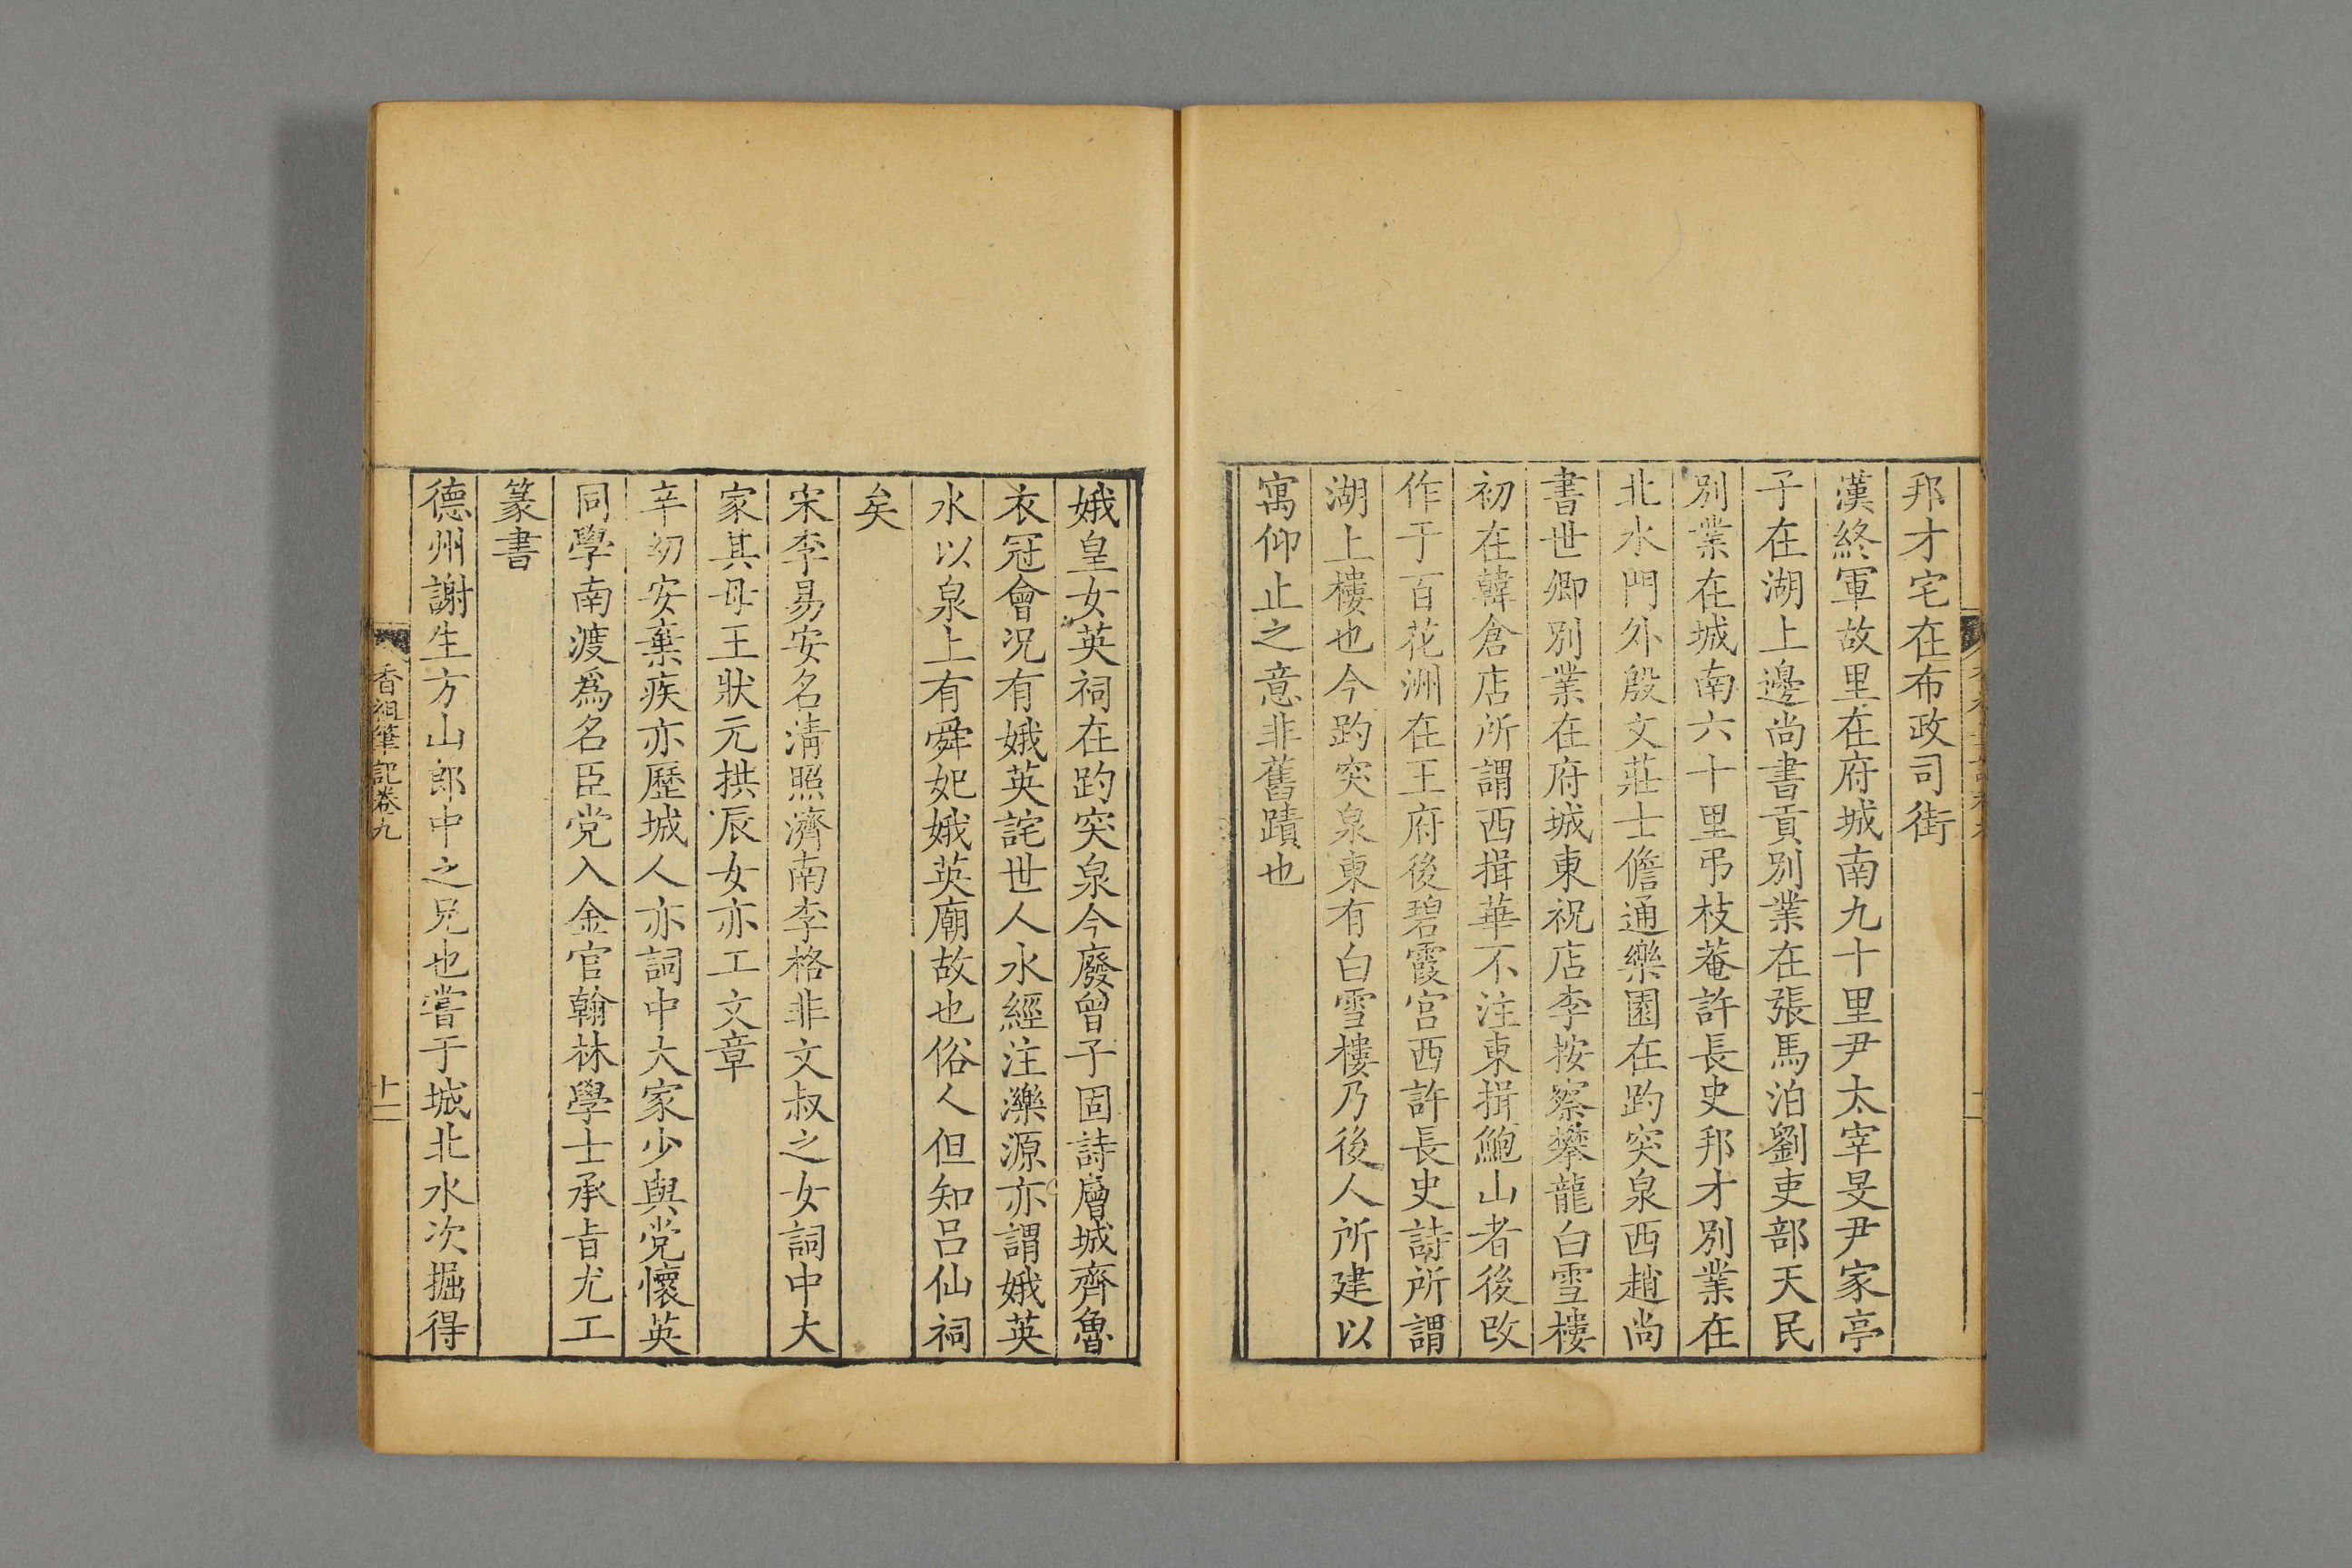 邦才宅在布政司街
漢終軍故里在府城南九十里尹太宰旻尹家亭
子在湖上邊尚書貢別業在張馬泊劉吏部天民
別業在城南六十里弔枝菴許長史邦才別業在
北水門外殷文莊士儋通樂園在趵突泉西趙尚
書世卿別業在府城東祝店李按察攀龍白雪樓
初在韓倉店所謂西揖華不注東揖鮑山者後改
作于百花洲在王府後碧霞宮西許長史詩所謂
湖上樓也今趵突泉東有白雪樓乃後人所建以
寓仰止之意非舊蹟也
娥皇女英祠在趵突泉今廢曾子固詩層城齊魯
衣冠會況有娥英詫世人水經注濼源亦謂娥英
水以泉上有舜妃娥英廟故也俗人但知呂仙祠
矣
宋李易安名清照濟南李格非文叔之女詞中大
家其母王狀元拱辰女亦工文章
辛幼安棄疾亦歷城人亦詞中大家少與党懷英
同學南渡爲名臣党入金官翰林學士承旨尤工
篆書
德州謝生方山郎中之兄也嘗于城北水次掘得
香祖筆記卷九
十二